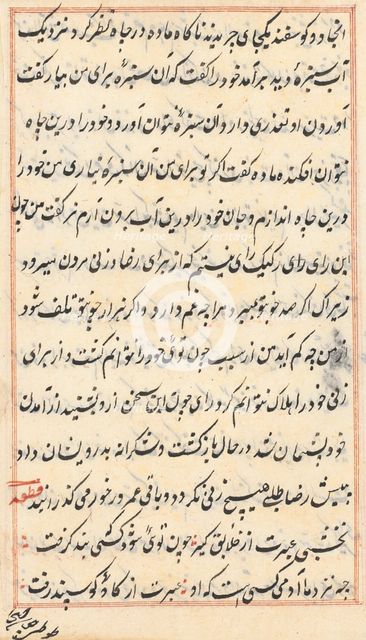 انجا دو کوسفند یکجای جریدند ناکاه ماده در جاه نظر کرد نزدیک
آب سبزهٔ دید بر آمد خود را کفت که آن سبزه برای من بیار کفت
آوردن او تعذری دارد آن سبزه نتوان آورد و خود را درین جاه
نتوان افکند ماده کفت اکر تو برای من آن سبزه نیاری من خود را
درین جاه اندازم و جان خود را درین آب برون آرم نر کفت من جون
این رای رکیک رای نیستم که از برای رضا زنی مردن میرود
زیراک اکر همه جو تو بمیرد مرا جه غم دارد و اکر هزار جو تو تلف شود
از من جه کم آید من از سبب جون توئی خود را نتوانم کشت و از برای
زنی خود را هلاک نتوانم کرد رای جون این سخن از و شنید از آمدن
خود بشیمان شد در حال بازکشت و شکرانه بدرویشان داد
بیش رضا طلبی هیچ زنی نکردد و باقی عمر در خور می کذرانید قطعه
نخشبی عبرت از خلایق کیر جون توئی سو و کشی بند کرفت
جه نزد ما آدمی کسی است که او عبرت از کاو و کوسبند رفت